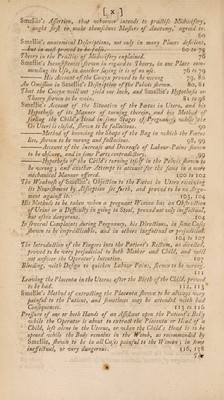 [ x ]
Smellie's Assertion, that whoever intends to practise Midwifery,
ought first to make themselves Masters of Anatomy, agreed to.
60
Smellie's anatomical Descriptions, not only in many Places deficient,
but in most proved to be false. 60 to 79
Theory in the Practice of Midwifery explained. 76
Smellie's Inconsistency shewn in regard to Theory, in one Place commending its Use, in another saying it is of no use. 76 to 79
His Account of the Coccyx proved to be wrong 79, 80
An Omission in Smellie's Description of the Pelvis shewn. 80, 81
That the Coccyx will not yield one Inch, and Smellie's Hypothesis or
Theory shewn to be vain. 82 to 98
Smellie's Account of the Situation of the Fœtus in Utero, and his
Hypothesis of its Manner of turning therein, and his Method of
feeling the Child's Head in some Stages of Pregnancy, while the
Os Uteri is close, shewn to be fallacious. 90
Method of knowing the Shape of the Bag in which the Fœtus
lies, shewn to be wrong and fallacious. 98, 99
Account of the Increase and Decrease of Labour Pains shewn to
be absurd, and one Part contradictory. 99
Hypothesis of the Child's turning itself in the Pelvis shewn to
be wrong; and another Attempt to account for the same in a more
mechanical Manner offered. 100 to 102
The Weakness of Smellie's Objection to the Fœtus in Utero receiving
its Nourishment by Absorption set forth, and proved to be no Argument against it. 103, 104
His Method to be taken when a pregnant Woman has an Obstruction
of Urine or a Difficulty in going to Stool, proved not only ineffectual,
but often dangerous. 104
In several Complaints during Pregnancy, his Directions, in some Cases
shewn to be impracticable, and in others ineffectual or prejudicial.
The Introduction of the Fingers into the Patient's Rectum, as directed,
proved to be very prejudicial to both Mother and Child, and will
not answer the Operator's Intention. 107
Bleeding, with Design to quicken Labour Pains, shewn to be wrong.
111
Leaving the Placenta in the Uterus after the Birth of the Child, proved
to be bad. 112, 113
Smellie's Method of extracting the Placenta shewn to be always very
painful to the Patient, and sometimes may be attended with bad
Consequences. 113 to 116
Pressure of one or both Hands of an Assistant upon the Patient's Body
while the Operator is about to extract the Placenta or Head of a
Child, left alone in the Uterus, or when the Child's Head is to be
opened while the Body remains in the Womb, as recommended by
Smellie, shewn to be in all Cases painful to the Women; in some
ineffectual, or very dangerous. 116, 138